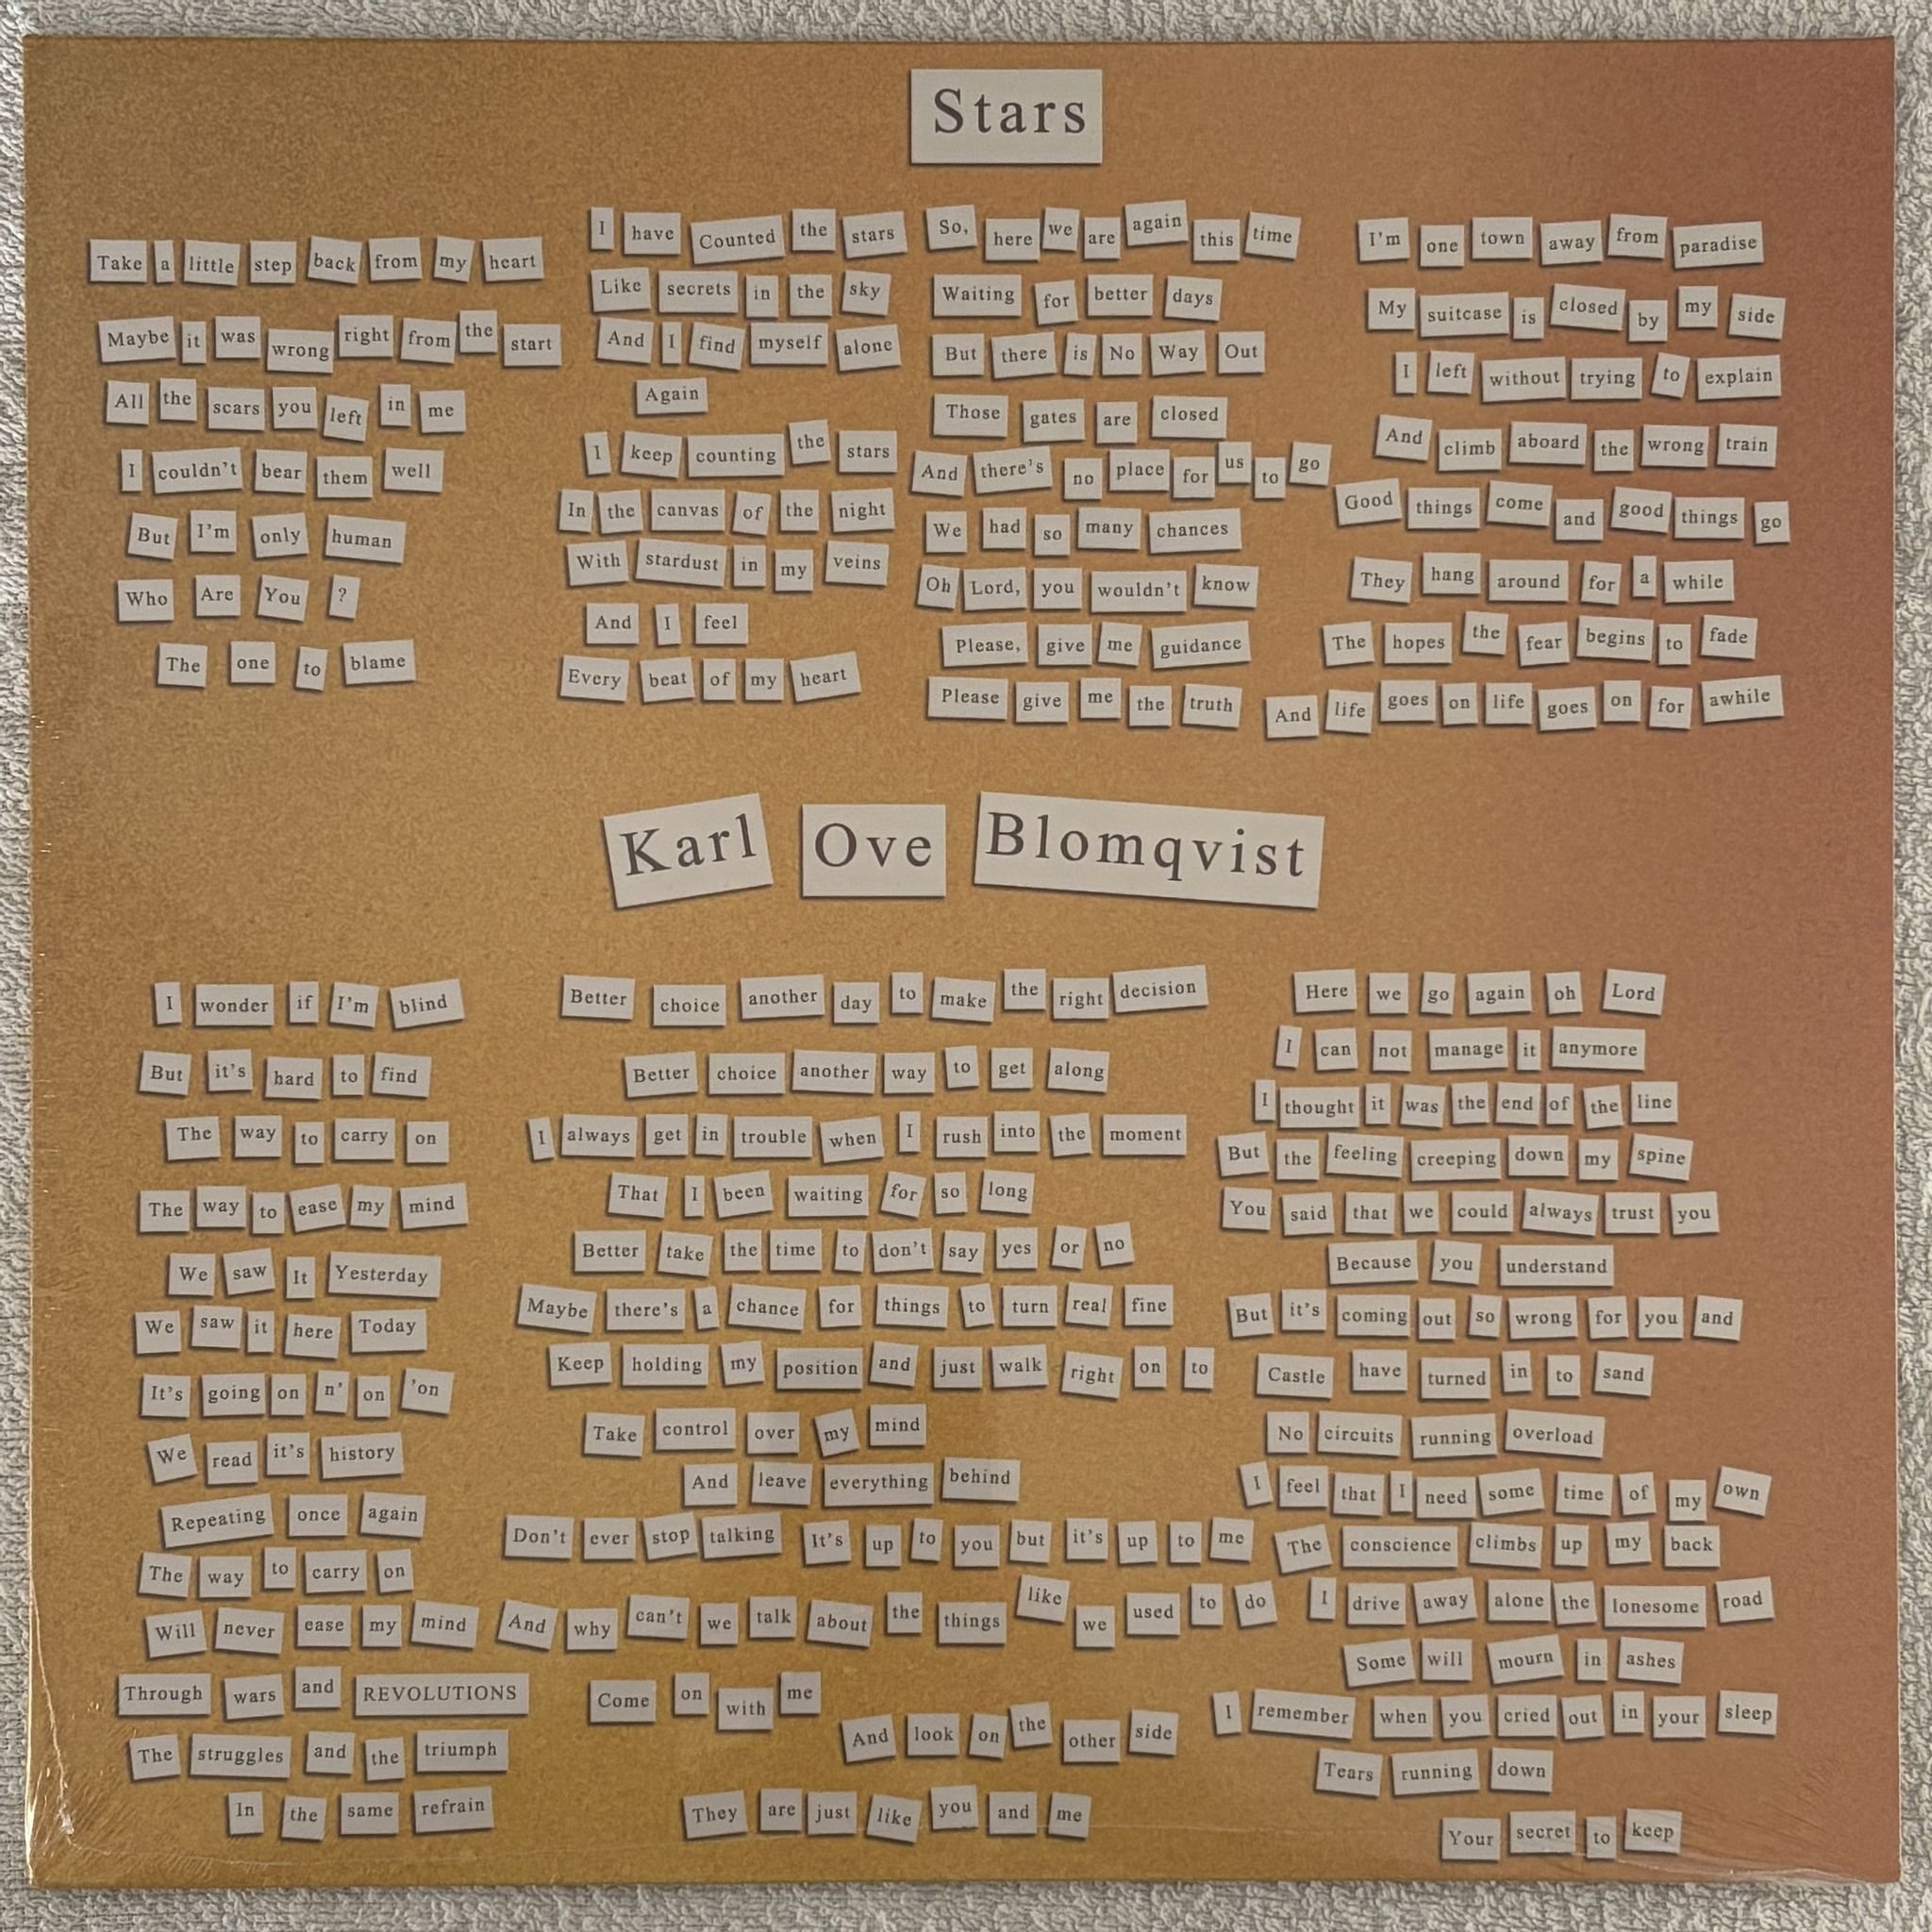 Stars
Take a little step back from my heart
Maybe it was wrong right from the start
All the scars you left in me
I couldn't bear them well
But I'm only human
Who Are You ?
The one to blame
I have Counted the stars
Like secrets in the sky
And I find myself alone
Again
I keep counting the stars
In the canvas of the night
With stardust in my veins
And I feel
Every beat of my heart
So, here we are again this time
Waiting for better days
But there is No Way Out
Those gates are closed
And there's no place for us to go
We had so many chances
Oh Lord, you wouldn't know
Please, give me guidance
Please give me the truth
I'm one town away from paradise
My suitcase is closed by my side
I left without trying to explain
And climb aboard the wrong train
Good things come and good things go
They hang around for a while
The hopes the fear begins to fade
And life goes on life goes on for awhile
Karl Ove Blomqvist
I wonder if I'm blind
But it's hard to find
The way to carry on
The way to ease my mind
We saw It Yesterday
We saw it here Today
It's going on n' on 'on
We read it's history
Repeating once again
The way to carry on
Will never ease my mind
Through wars and REVOLUTIONS
The struggles and the triumph
In the same refrain
Better choice another day to make the right decision
Better choice another way to get along
I always get in trouble when I rush into the moment
That I been waiting for so long
Better take the time to don't say yes or no
Maybe there's a chance for things to turn real fine
Keep holding my position and just walk right on to
Take control over my mind
And leave everything behind
Don't ever stop talking It's up to you but it's up to me
And why can't we talk about the things like we used to do
Come on with me
And look on the other side
They are just like you and me
Here we go again oh Lord
I can not manage it anymore
I thought it was the end of the line
But the feeling creeping down my spine
You said that we could always trust you
Because you understand
But it's coming out so wrong for you and
Castle have turned in to sand
No circuits running overload
I feel that I need some time of my own
The conscience climbs up my back
I drive away alone the lonesome road
Some will mourn in ashes
I remember when you cried out in your sleep
Tears running down
Your secret to keep